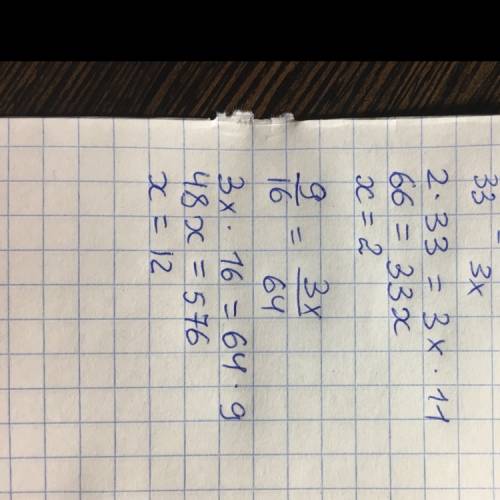 33 3x
2 · 33 = 3x · 11
66 = 33x
x = 2
9/16 = 3x/64
3x · 16 = 64 · 9
48x = 576
x = 12